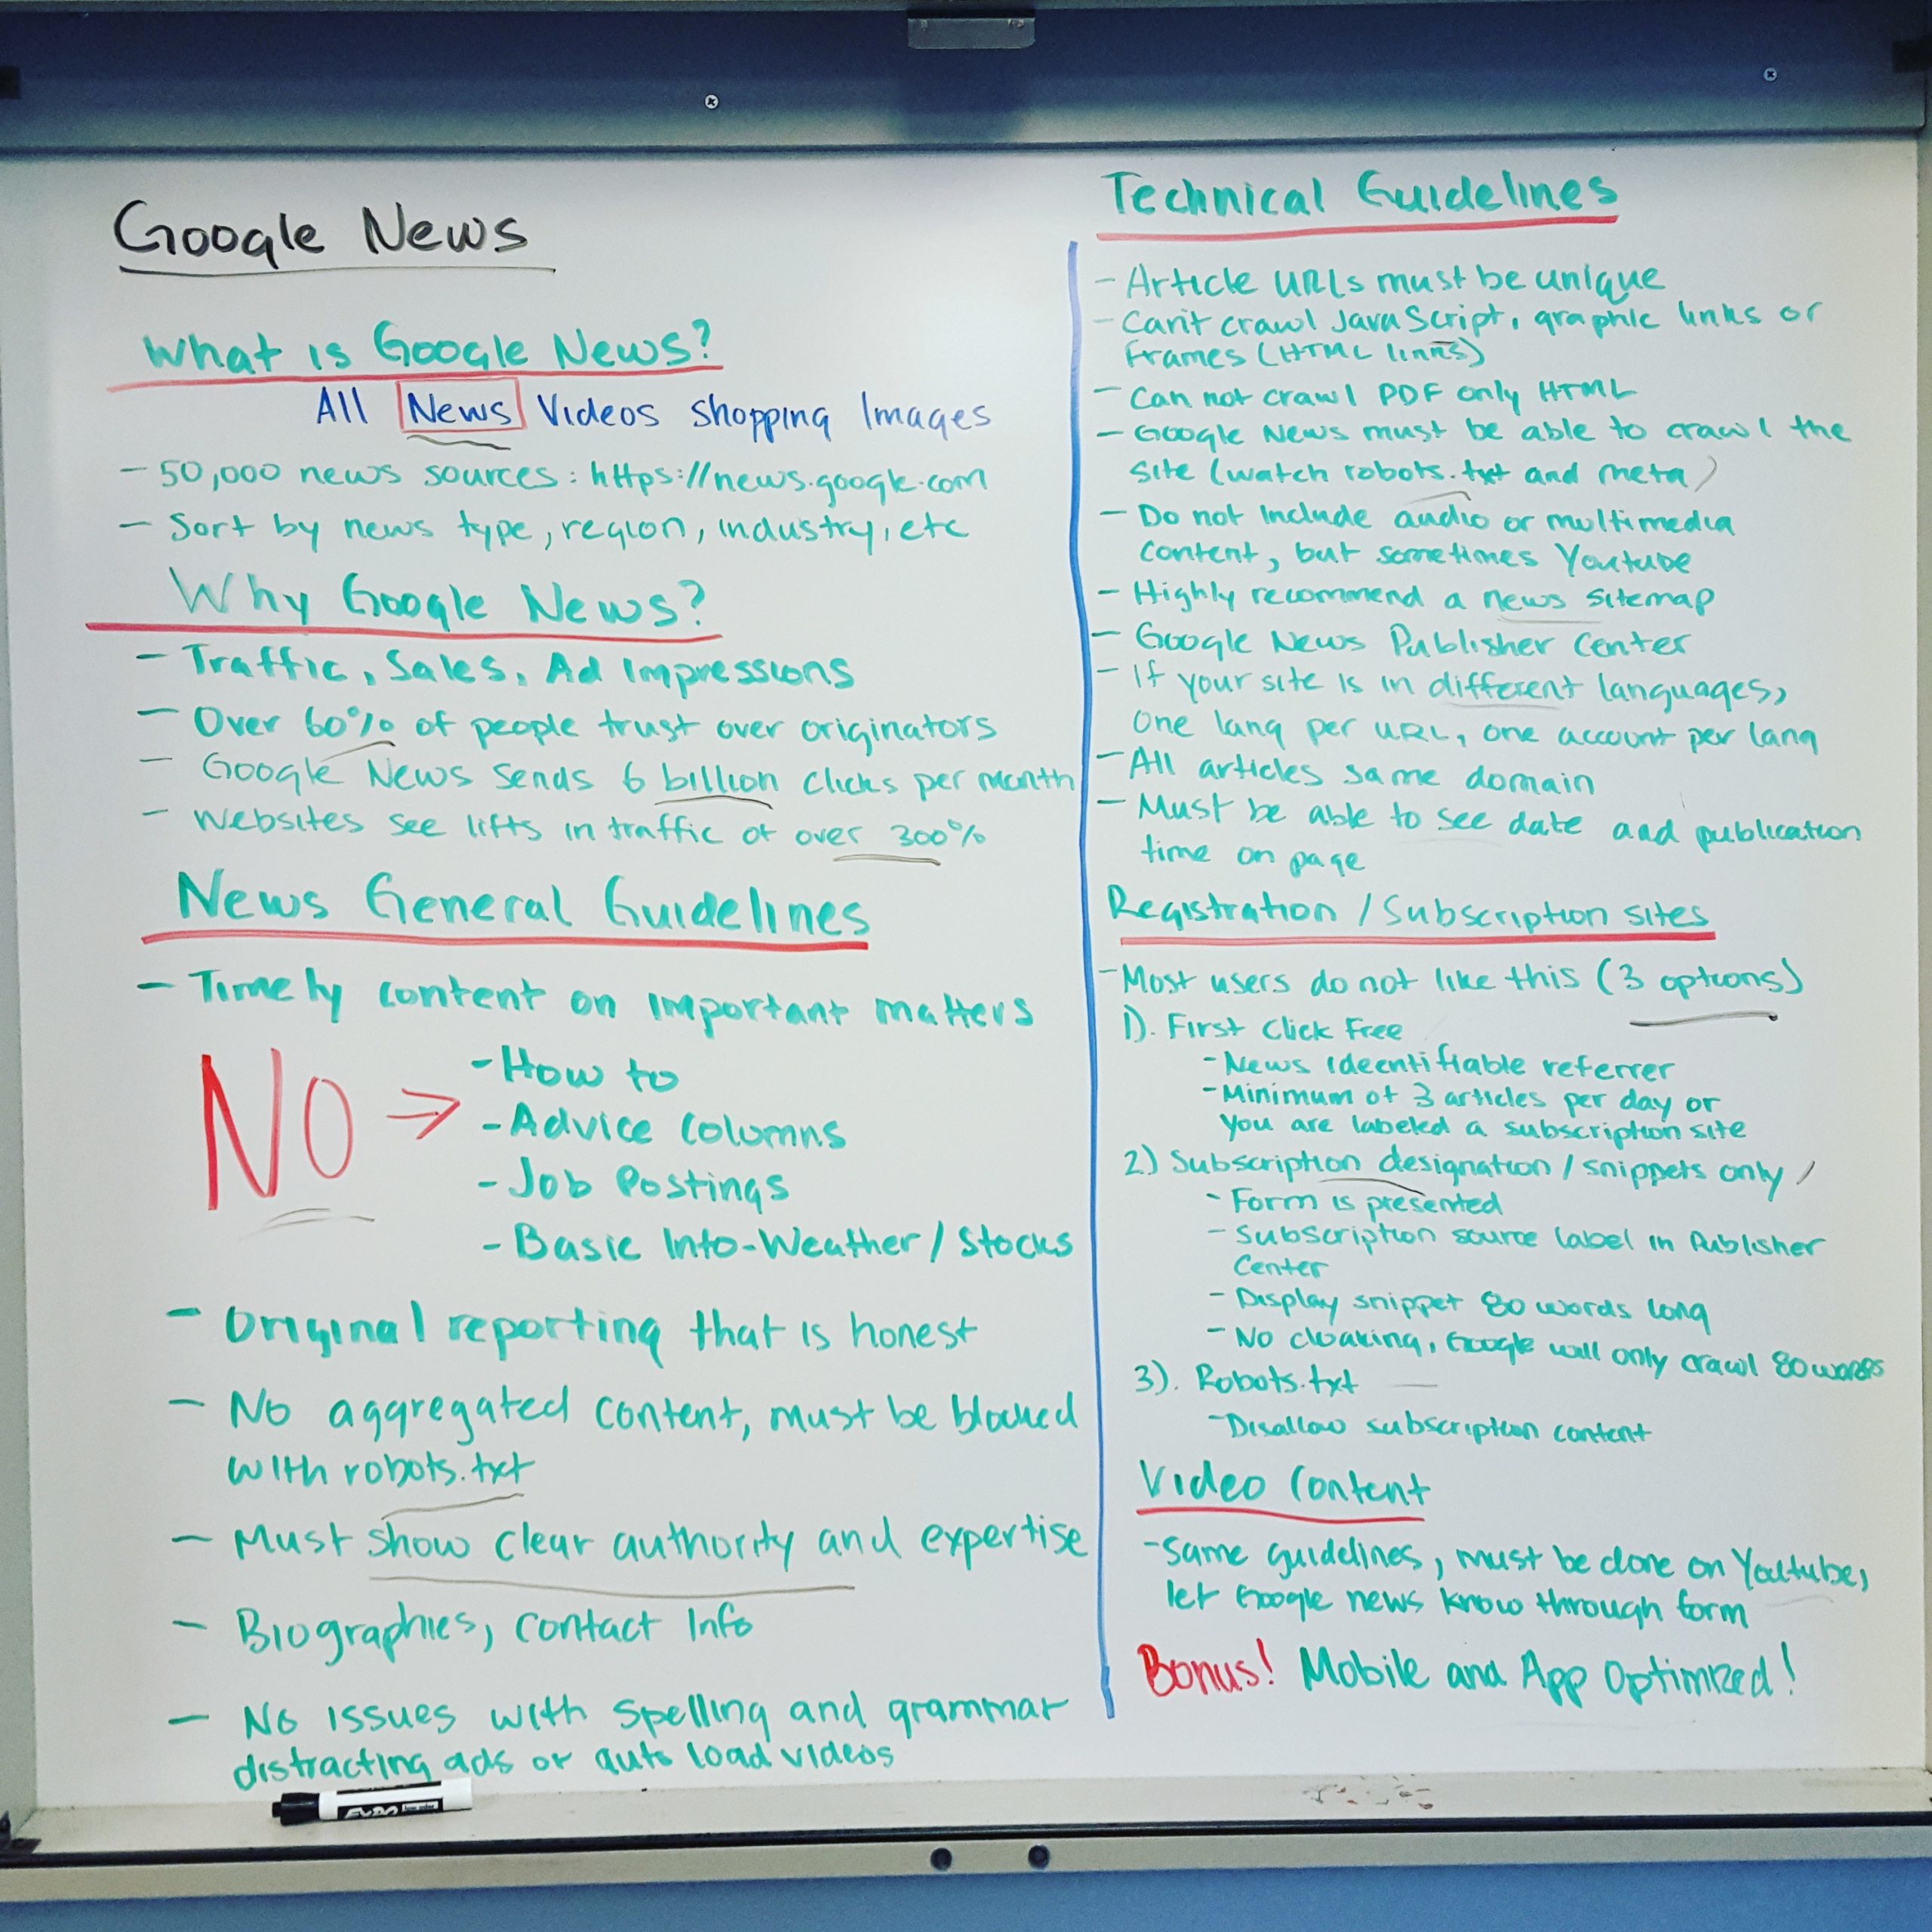 Google News
What is Google News?
All News Videos Shopping Images
- 50,000 news sources: https://news.google.com
- Sort by news type, region, industry, etc
Why Google News?
- Traffic, Sales, Ad Impressions
- Over 60% of people trust over originators
- Google News sends 6 billion clicks per month
- Websites see lifts in traffic of over 300%
News General Guidelines
- Timely content on important matters
NO →
- How to
- Advice Columns
- Job Postings
- Basic Info-Weather/Stocks
- Original reporting that is honest
- No aggregated content, must be blocked
with robots.txt
- Must show clear authority and expertise
- Biographies, contact info
- No issues with spelling and grammar
distracting ads or auto load videos
EXPO
Technical Guidelines
- Article URLs must be unique
- Can't crawl JavaScript, graphic links or
frames (HTML links)
- Can not crawl PDF only HTML
- Google News must be able to crawl the
site (watch robots.txt and meta)
- Do not include audio or multimedia
content, but sometimes Youtube
- Highly recommend a news sitemap
- Google News Publisher Center
- If your site is in different languages,
one lang per URL, one account per lang
- All articles same domain
- Must be able to see date and publication
time on page
Registration / Subscription sites
- Most users do not like this (3 options)
1). First Click Free
- News ideentifiable referrer
- Minimum of 3 articles per day or
you are labeled a subscription site
2) Subscription designation / snippets only
- Form is presented
- Subscription source label in Publisher
Center
- Display snippet 80 words long
- No cloaking, Google will only crawl 80 words
3). Robots.txt
- Disallow subscription content
Video Content
- Same guidelines, must be done on Youtube,
let Google news know through form
Bonus! Mobile and App Optimized!